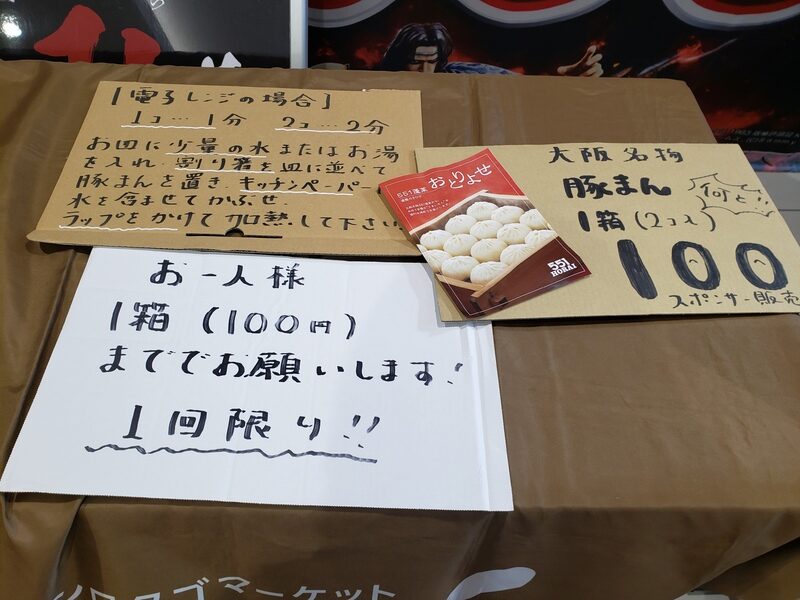 [電子レンジの場合]
1コ…1分 2コ…2分
お皿に少量の水またはお湯
を入れ、割り箸を皿に並べて
豚まんを置き、キッチンペーパー
水を含ませてかぶせ
ラップをかけて加熱して下さい
551蓬莱
おとりよせ
551
HORAI
大阪名物
豚まん
何と!!
1箱(2コ入)
100
スポンサー販売
お一人様
1箱(100円)
まででお願いします!
1回限り!!
ゴマーケット